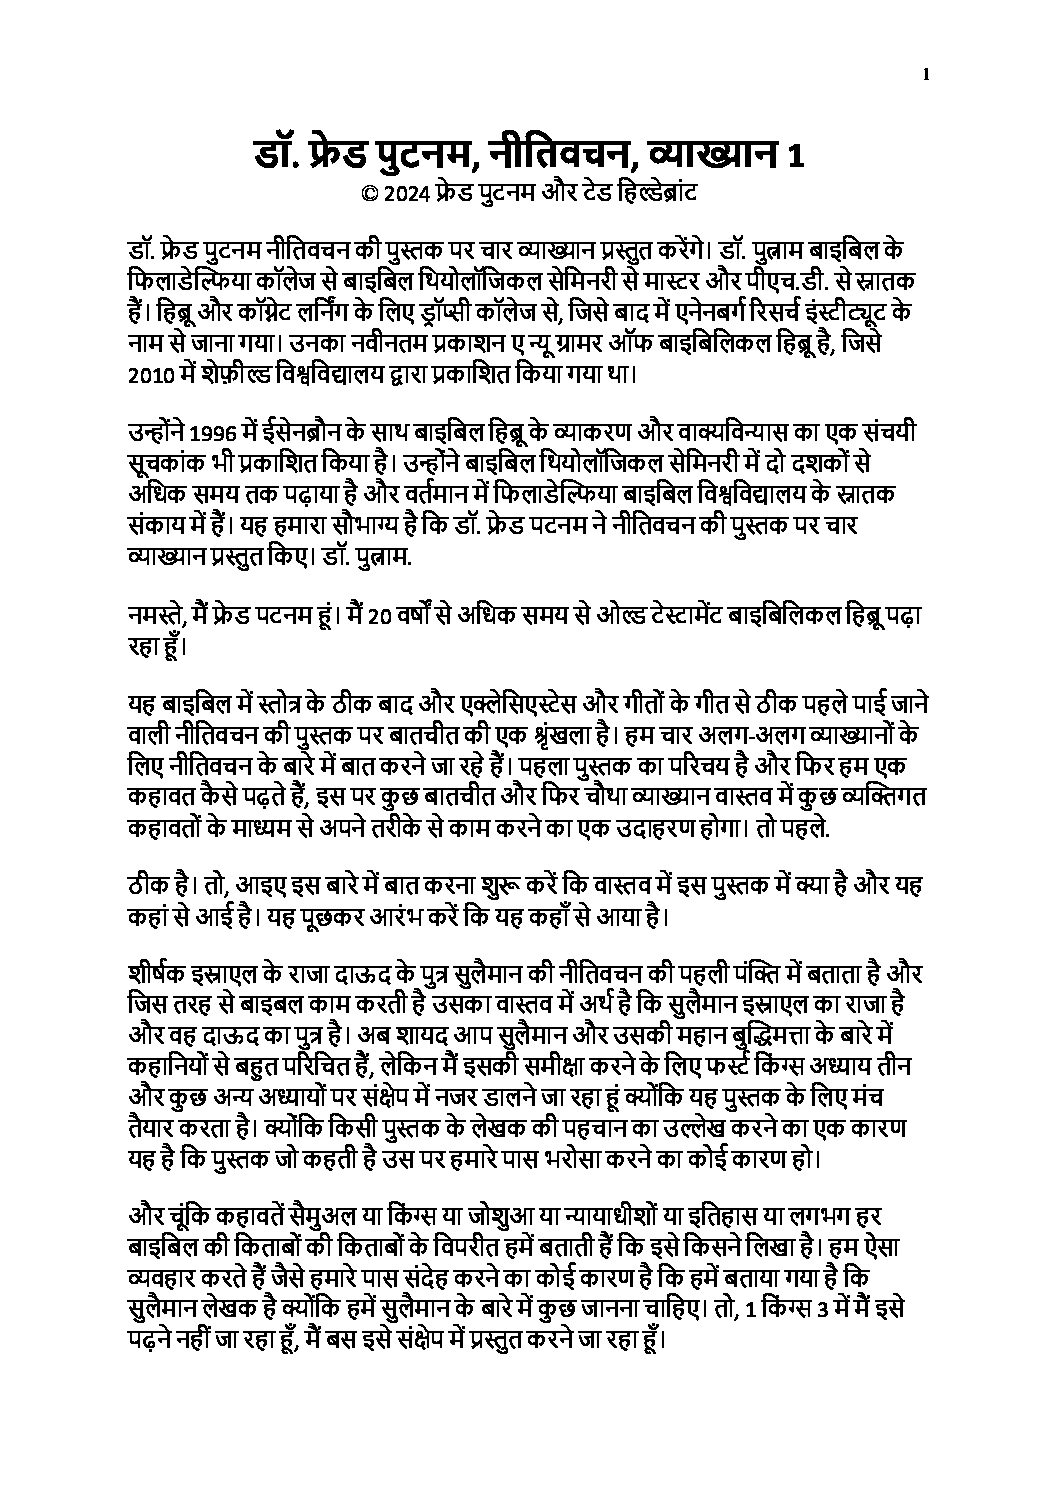 1
डॉ. फ्रेड पुटनम, नीतिवचन, व्याख्यान 1
© 2024 फ्रेड पुटनम और टेड हिल्डेब्रांट
डॉ. फ्रेड पुटनम नीतिवचन की पुस्तक पर चार व्याख्यान प्रस्तुत करेंगे। डॉ. पुत्नाम बाइबिल के
फिलाडेल्फिया कॉलेज से बाइबिल थियोलॉजिकल सेमिनरी से मास्टर और पीएच.डी. से स्नातक
हैं। हिब्रू और कॉग्नेट लर्निंग के लिए ड्रॉप्सी कॉलेज से, जिसे बाद में एनेनबर्ग रिसर्च इंस्टीट्यूट के
नाम से जाना गया। उनका नवीनतम प्रकाशन ए न्यू ग्रामर ऑफ बाइबिलिकल हिब्रू है, जिसे
2010 में शेफ़ील्ड विश्वविद्यालय द्वारा प्रकाशित किया गया था।
उन्होंने 1996 में ईसेनब्रौन के साथ बाइबिल हिब्रू के व्याकरण और वाक्यविन्यास का एक संचयी
सूचकांक भी प्रकाशित किया है। उन्होंने बाइबिल थियोलॉजिकल सेमिनरी में दो दशकों से
अधिक समय तक पढ़ाया है और वर्तमान में फिलाडेल्फिया बाइबिल विश्वविद्यालय के स्नातक
संकाय में हैं। यह हमारा सौभाग्य है कि डॉ. फ्रेड पटनम ने नीतिवचन की पुस्तक पर चार
व्याख्यान प्रस्तुत किए। डॉ. पुत्नाम.
नमस्ते, मैं फ्रेड पटनम हूं। मैं 20 वर्षों से अधिक समय से ओल्ड टेस्टामेंट बाइबिलिकल हिब्रू पढ़ा
रहा हूँ।
यह बाइबिल में स्तोत्र के ठीक बाद और एक्लेसिएस्टेस और गीतों के गीत से ठीक पहले पाई जाने
वाली नीतिवचन की पुस्तक पर बातचीत की एक श्रृंखला है। हम चार अलग-अलग व्याख्यानों के
लिए नीतिवचन के बारे में बात करने जा रहे हैं। पहला पुस्तक का परिचय है और फिर हम एक
कहावत कैसे पढ़ते हैं, इस पर कुछ बातचीत और फिर चौथा व्याख्यान वास्तव में कुछ व्यक्तिगत
कहावतों के माध्यम से अपने तरीके से काम करने का एक उदाहरण होगा। तो पहले.
ठीक है। तो, आइए इस बारे में बात करना शुरू करें कि वास्तव में इस पुस्तक में क्या है और यह
कहां से आई है। यह पूछकर आरंभ करें कि यह कहाँ से आया है।
शीर्षक इस्राएल के राजा दाऊद के पुत्र सुलैमान की नीतिवचन की पहली पंक्ति में बताता है और
जिस तरह से बाइबल काम करती है उसका वास्तव में अर्थ है कि सुलैमान इस्राएल का राजा है
और वह दाऊद का पुत्र है। अब शायद आप सुलैमान और उसकी महान बुद्धिमत्ता के बारे में
कहानियों से बहुत परिचित हैं, लेकिन मैं इसकी समीक्षा करने के लिए फर्स्ट किंग्स अध्याय तीन
और कुछ अन्य अध्यायों पर संक्षेप में नजर डालने जा रहा हूं क्योंकि यह पुस्तक के लिए मंच
तैयार करता है। क्योंकि किसी पुस्तक के लेखक की पहचान का उल्लेख करने का एक कारण
यह है कि पुस्तक जो कहती है उस पर हमारे पास भरोसा करने का कोई कारण हो।
और चूंकि कहावतें सैमुअल या किंग्स या जोशुआ या न्यायाधीशों या इतिहास या लगभग हर
बाइबिल की किताबों की किताबों के विपरीत हमें बताती हैं कि इसे किसने लिखा है। हम ऐसा
व्यवहार करते हैं जैसे हमारे पास संदेह करने का कोई कारण है कि हमें बताया गया है कि
सुलैमान लेखक है क्योंकि हमें सुलैमान के बारे में कुछ जानना चाहिए। तो, 1 किंग्स 3 में मैं इसे
पढ़ने नहीं जा रहा हूँ, मैं बस इसे संक्षेप में प्रस्तुत करने जा रहा हूँ।